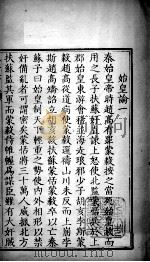 始皇論
秦始皇帝時趙高有罪蒙毅按之當死始皇赦而
用之長子扶蘇好直諫上怒使北監蒙恬兵於上
郡始皇東游會稽並海走琅琊少子胡亥李斯蒙
毅趙高從道病使蒙毅還禱山川未反而上崩李
斯趙高矯詔立胡亥殺扶蘇蒙恬蒙毅卒以亡秦
蘇子曰始皇制天下輕重之勢使內外相形以禁
奸備亂者可謂密矣蒙恬將三十萬人威振北方
扶蘇監其軍而蒙毅侍帷幄為謀臣雖有大奸賊